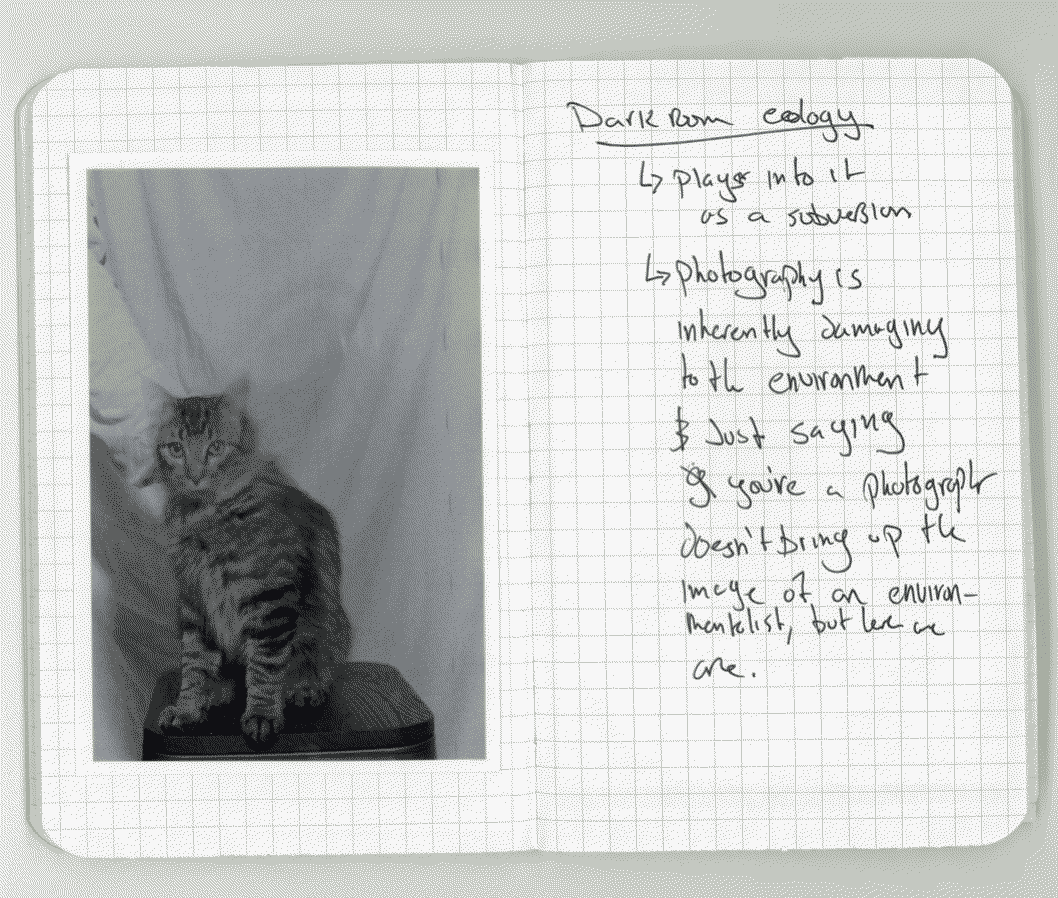 Dark Room ecology
↳ plays into it
as a subversion
↳ photography is
inherently damaging
to the environment
& Just saying
you're a photographr
doesn't bring up the
image of an environ-
mentalist, but here we
are.